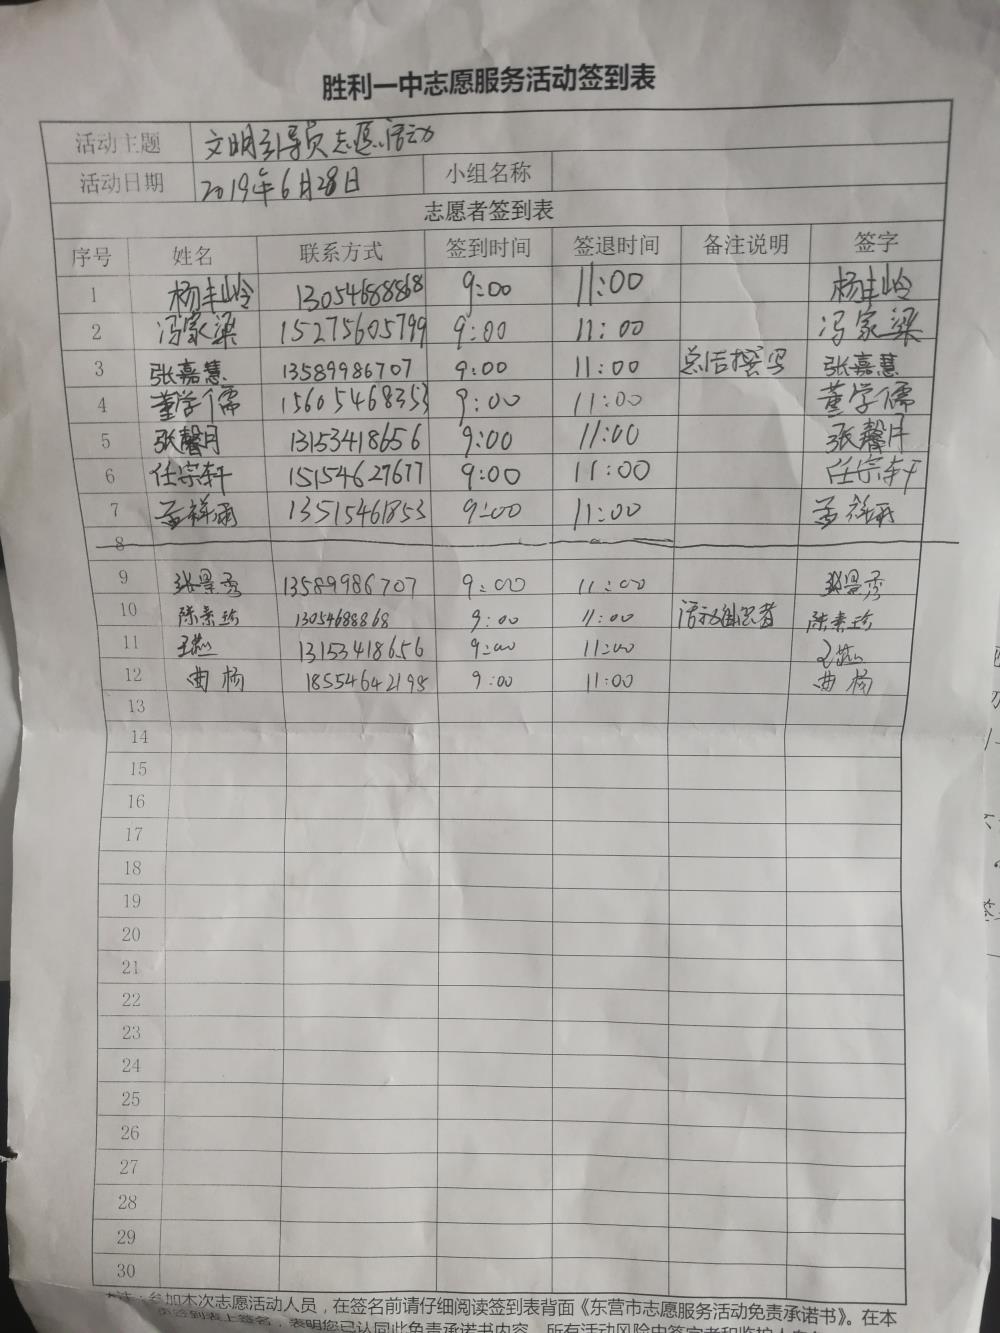 胜利一中志愿服务活动签到表
活动主题 文明引导员志愿活动
活动日期 2019年6月28日 小组名称
志愿者签到表
序号 姓名 联系方式 签到时间 签退时间 备注说明 签字
1 杨丰岭 13054688868 9:00 11:00 杨丰岭
2 冯家梁 15275605799 9:00 11:00 冯家梁
3 张嘉慧 13589986707 9:00 11:00 总结撰写 张嘉慧
4 董学儒 15605468353 9:00 11:00 董学儒
5 张馨月 13153418656 9:00 11:00 张馨月
6 任宗轩 15154627677 9:00 11:00 任宗轩
7 孟祥雨 13515461853 9:00 11:00 孟祥雨
8
9 张景秀 13589986707 9:00 11:00 张景秀
10 陈素珍 1305468868 9:00 11:00 活动组织者 陈素珍
11 王燕 13153418656 9:00 11:00 王燕
12 曲杨 18554642198 9:00 11:00 曲杨
13
14
15
16
17
18
19
20
21
22
23
24
25
26
27
28
29
30
*注:参加本次志愿活动人员，在签名前请仔细阅读签到表背面《东营市志愿服务活动免责承诺书》。在本
页签到表上签名，表明您已认同此免责承诺书内容，所有活动风险由签字者和监护人